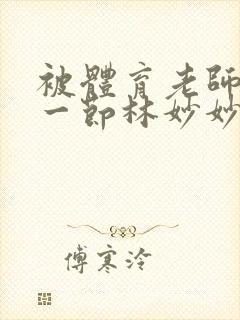 被體育老師
一節林妙妙
傅寒泠